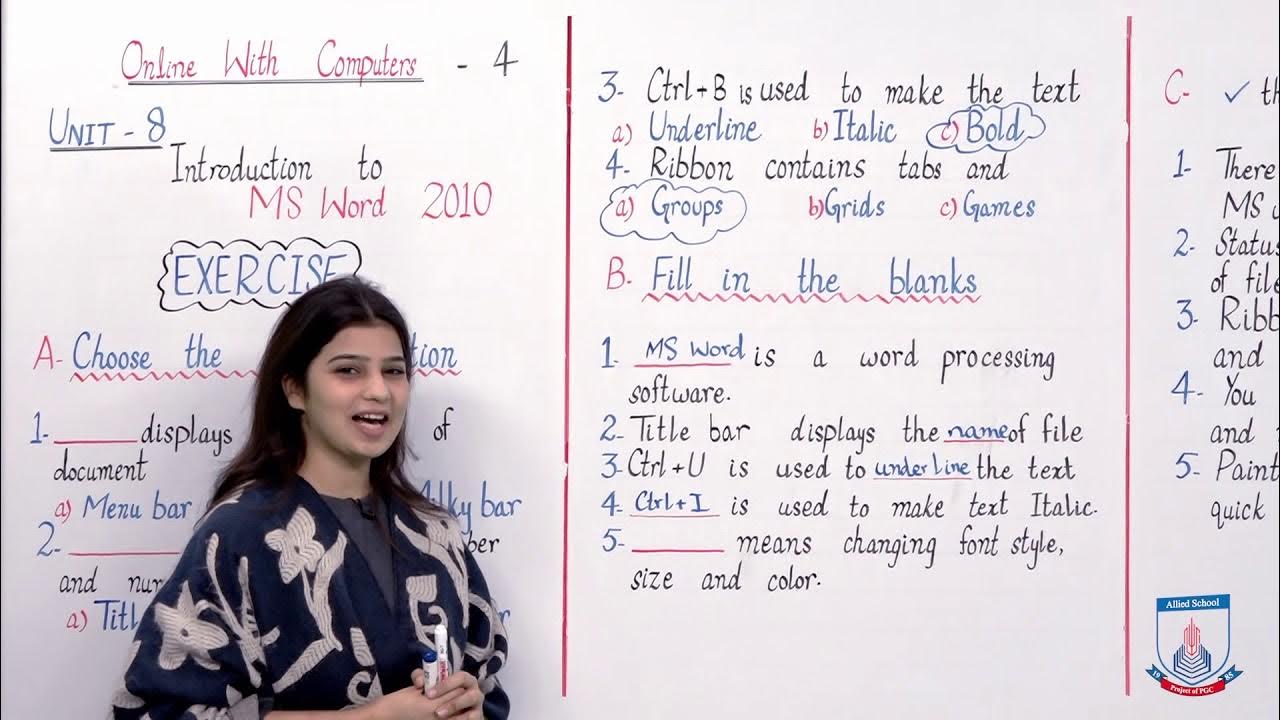 Online With Computers - 4
UNIT - 8
Introduction to
MS Word 2010
EXERCISE
A- Choose the
1- ______ displays of
document
a) Menu bar bar
2- ______
and
a)
3- Ctrl+B is used to make the text
a) Underline b) Italic c) Bold
4- Ribbon contains tabs and
a) Groups b) Grids c) Games
B- Fill in the blanks
1- MS Word is a word processing
software.
2- Title bar displays the name of file
3- Ctrl+U is used to underline the text
4- Ctrl+I is used to make text Italic.
5- ______ means changing font style,
size and color.
C- ✓
1- There
MS
2-
of
3-
and
4- You
and
5-
quick
Allied School
19 85
Project of PGC